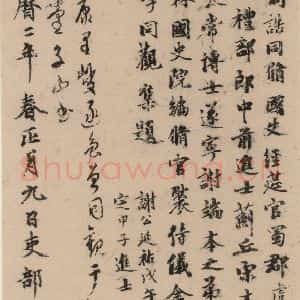 制誥同脩國史經筵官蜀郡虞
禮部郎中前進士薊丘宋
太常博士遂寧謝端本之弟
林國史院編脩官裴侍儀舍
同觀集題
謝公延祐戊午
定甲子進士
康里巎
同觀于
堂子山書
曆二年春正月九日吏部
Shufawang.cn